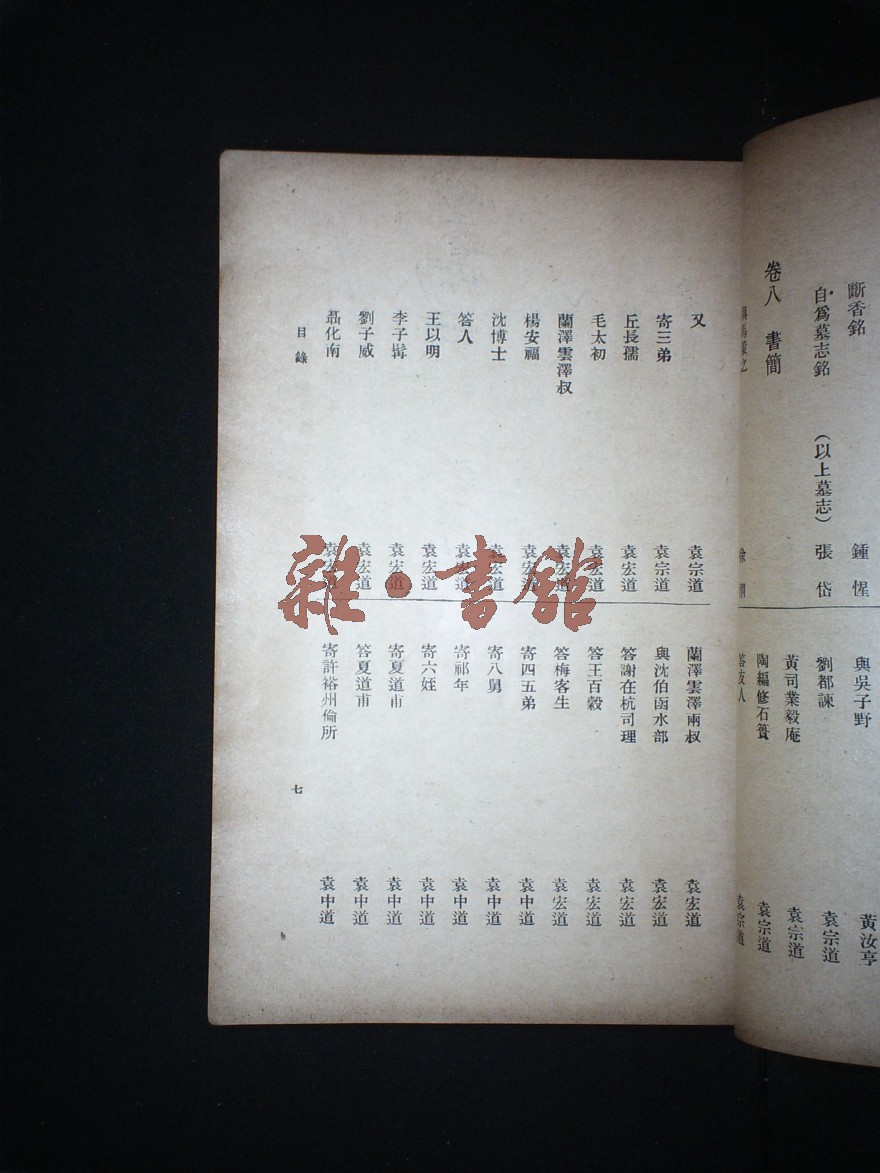 斷香銘 鍾惺
自爲墓志銘 （以上墓志）張岱
卷八 書簡
與吳子野 黃汝亨
劉都諫 袁宗道
黃司業毅庵 袁宗道
陶編修石簣 袁宗道
答友人 袁宗道
又 袁宗道
寄三弟 袁宗道
丘長孺 袁宏道
毛太初 袁宏道
蘭澤雲澤叔 袁宏道
楊安福 袁宏道
沈博士 袁宏道
答人 袁宏道
王以明 袁宏道
李子髯 袁宏道
劉子威 袁宏道
聶化南 袁宏道
蘭澤雲澤兩叔 袁宏道
與沈伯函水部 袁宏道
答謝在杭司理 袁宏道
答王百穀 袁宏道
答梅客生 袁宏道
寄四五弟 袁中道
寄八舅 袁中道
寄祁年 袁中道
寄六姪 袁中道
寄夏道甫 袁中道
答夏道甫 袁中道
寄許裕州倫所 袁中道
目錄
七
雜·書館